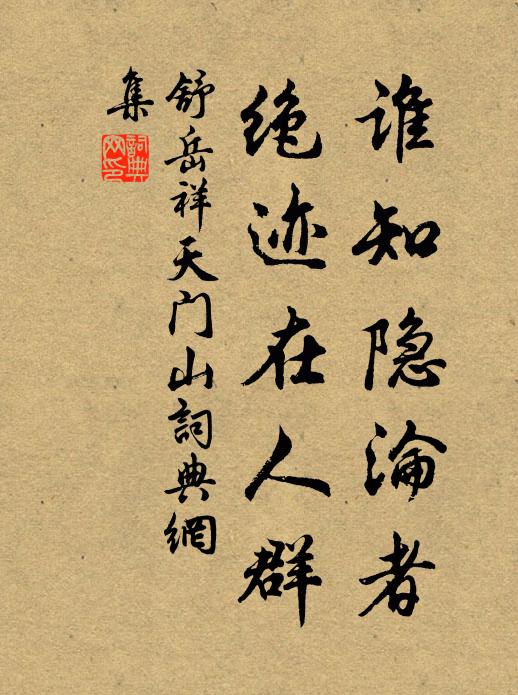 谁知隐沦者
绝迹在人群
舒岳祥天门山詞典網
集
詞典网印